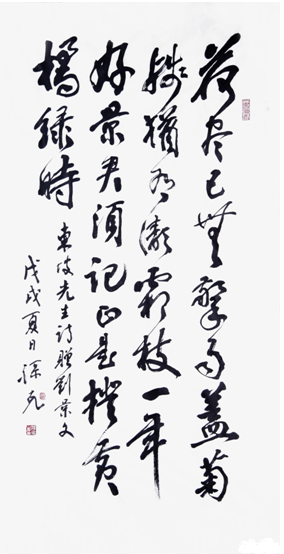 荷尽已無擎雨蓋菊
殘猶有傲霜枝一年
好景君須記正是橙黄
橘緑時
東坡先生詩贈劉景文
戊戌夏日